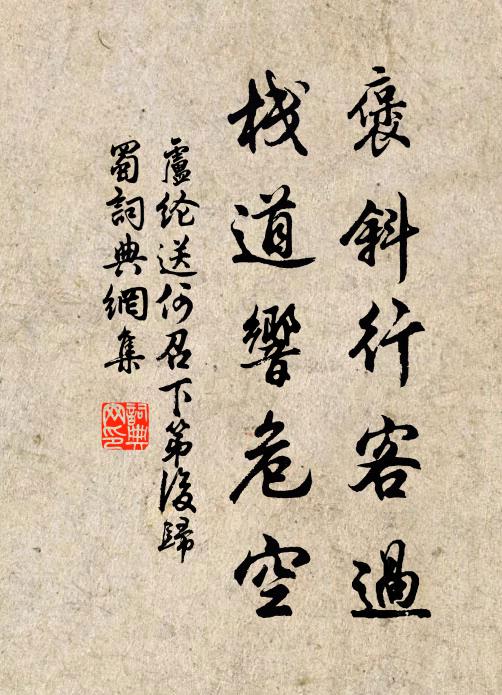 褒斜行客過
棧道響危空
盧纶送何召下第後歸
蜀詞典網集
詞典网印